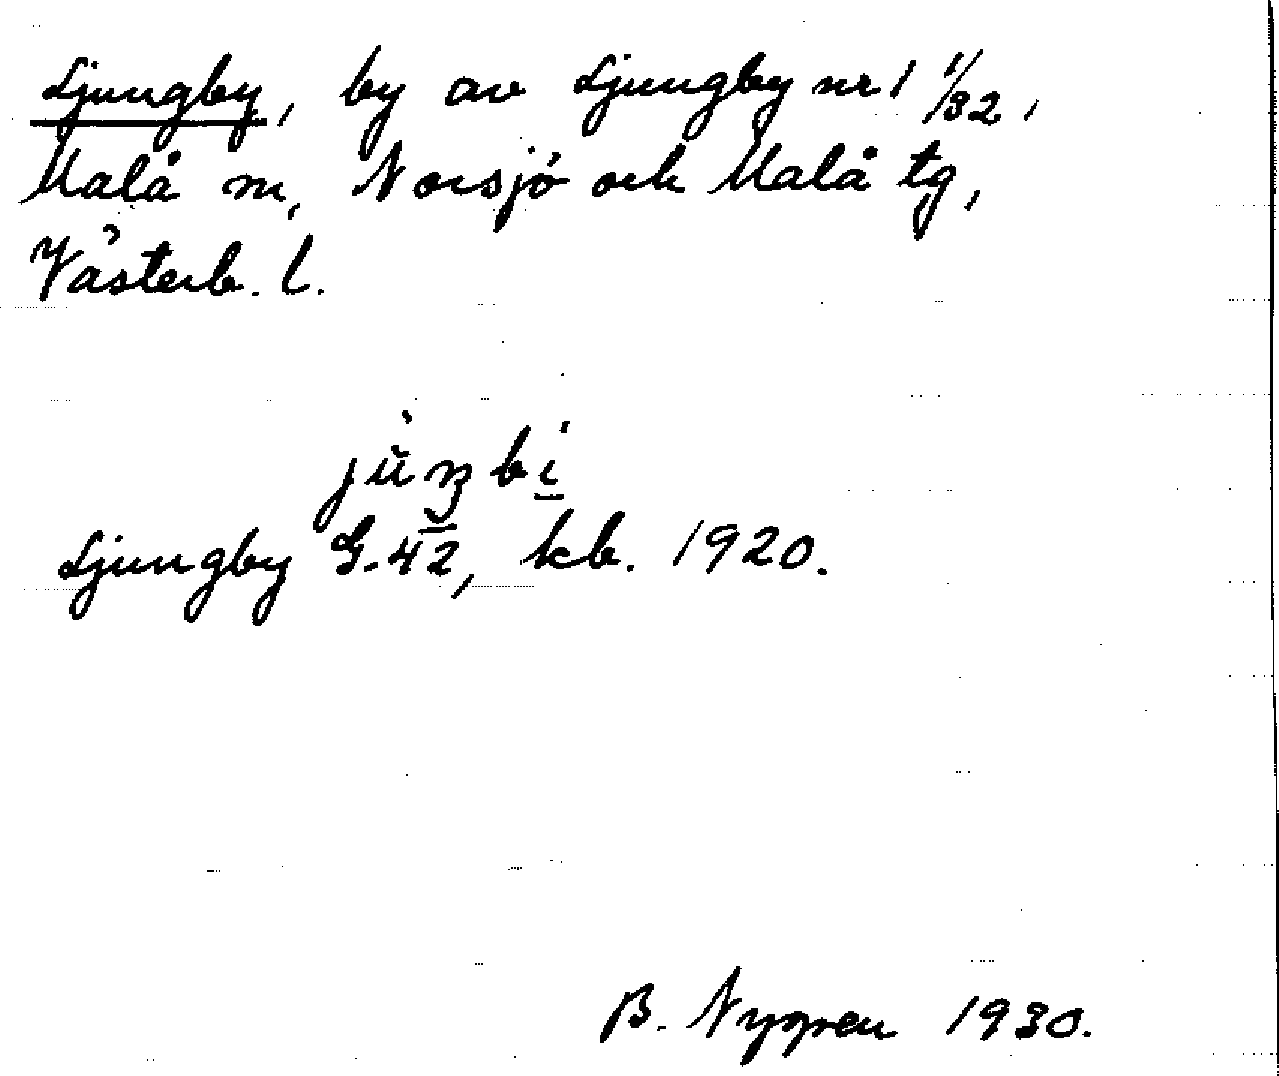 Ljungby, by av Ljungby nr 1 1/32,
Malå sn, Norsjö och Malå tg,
Västerb. l.
Ljungby G.42, kb. 1920.
B. Nygren 1930.